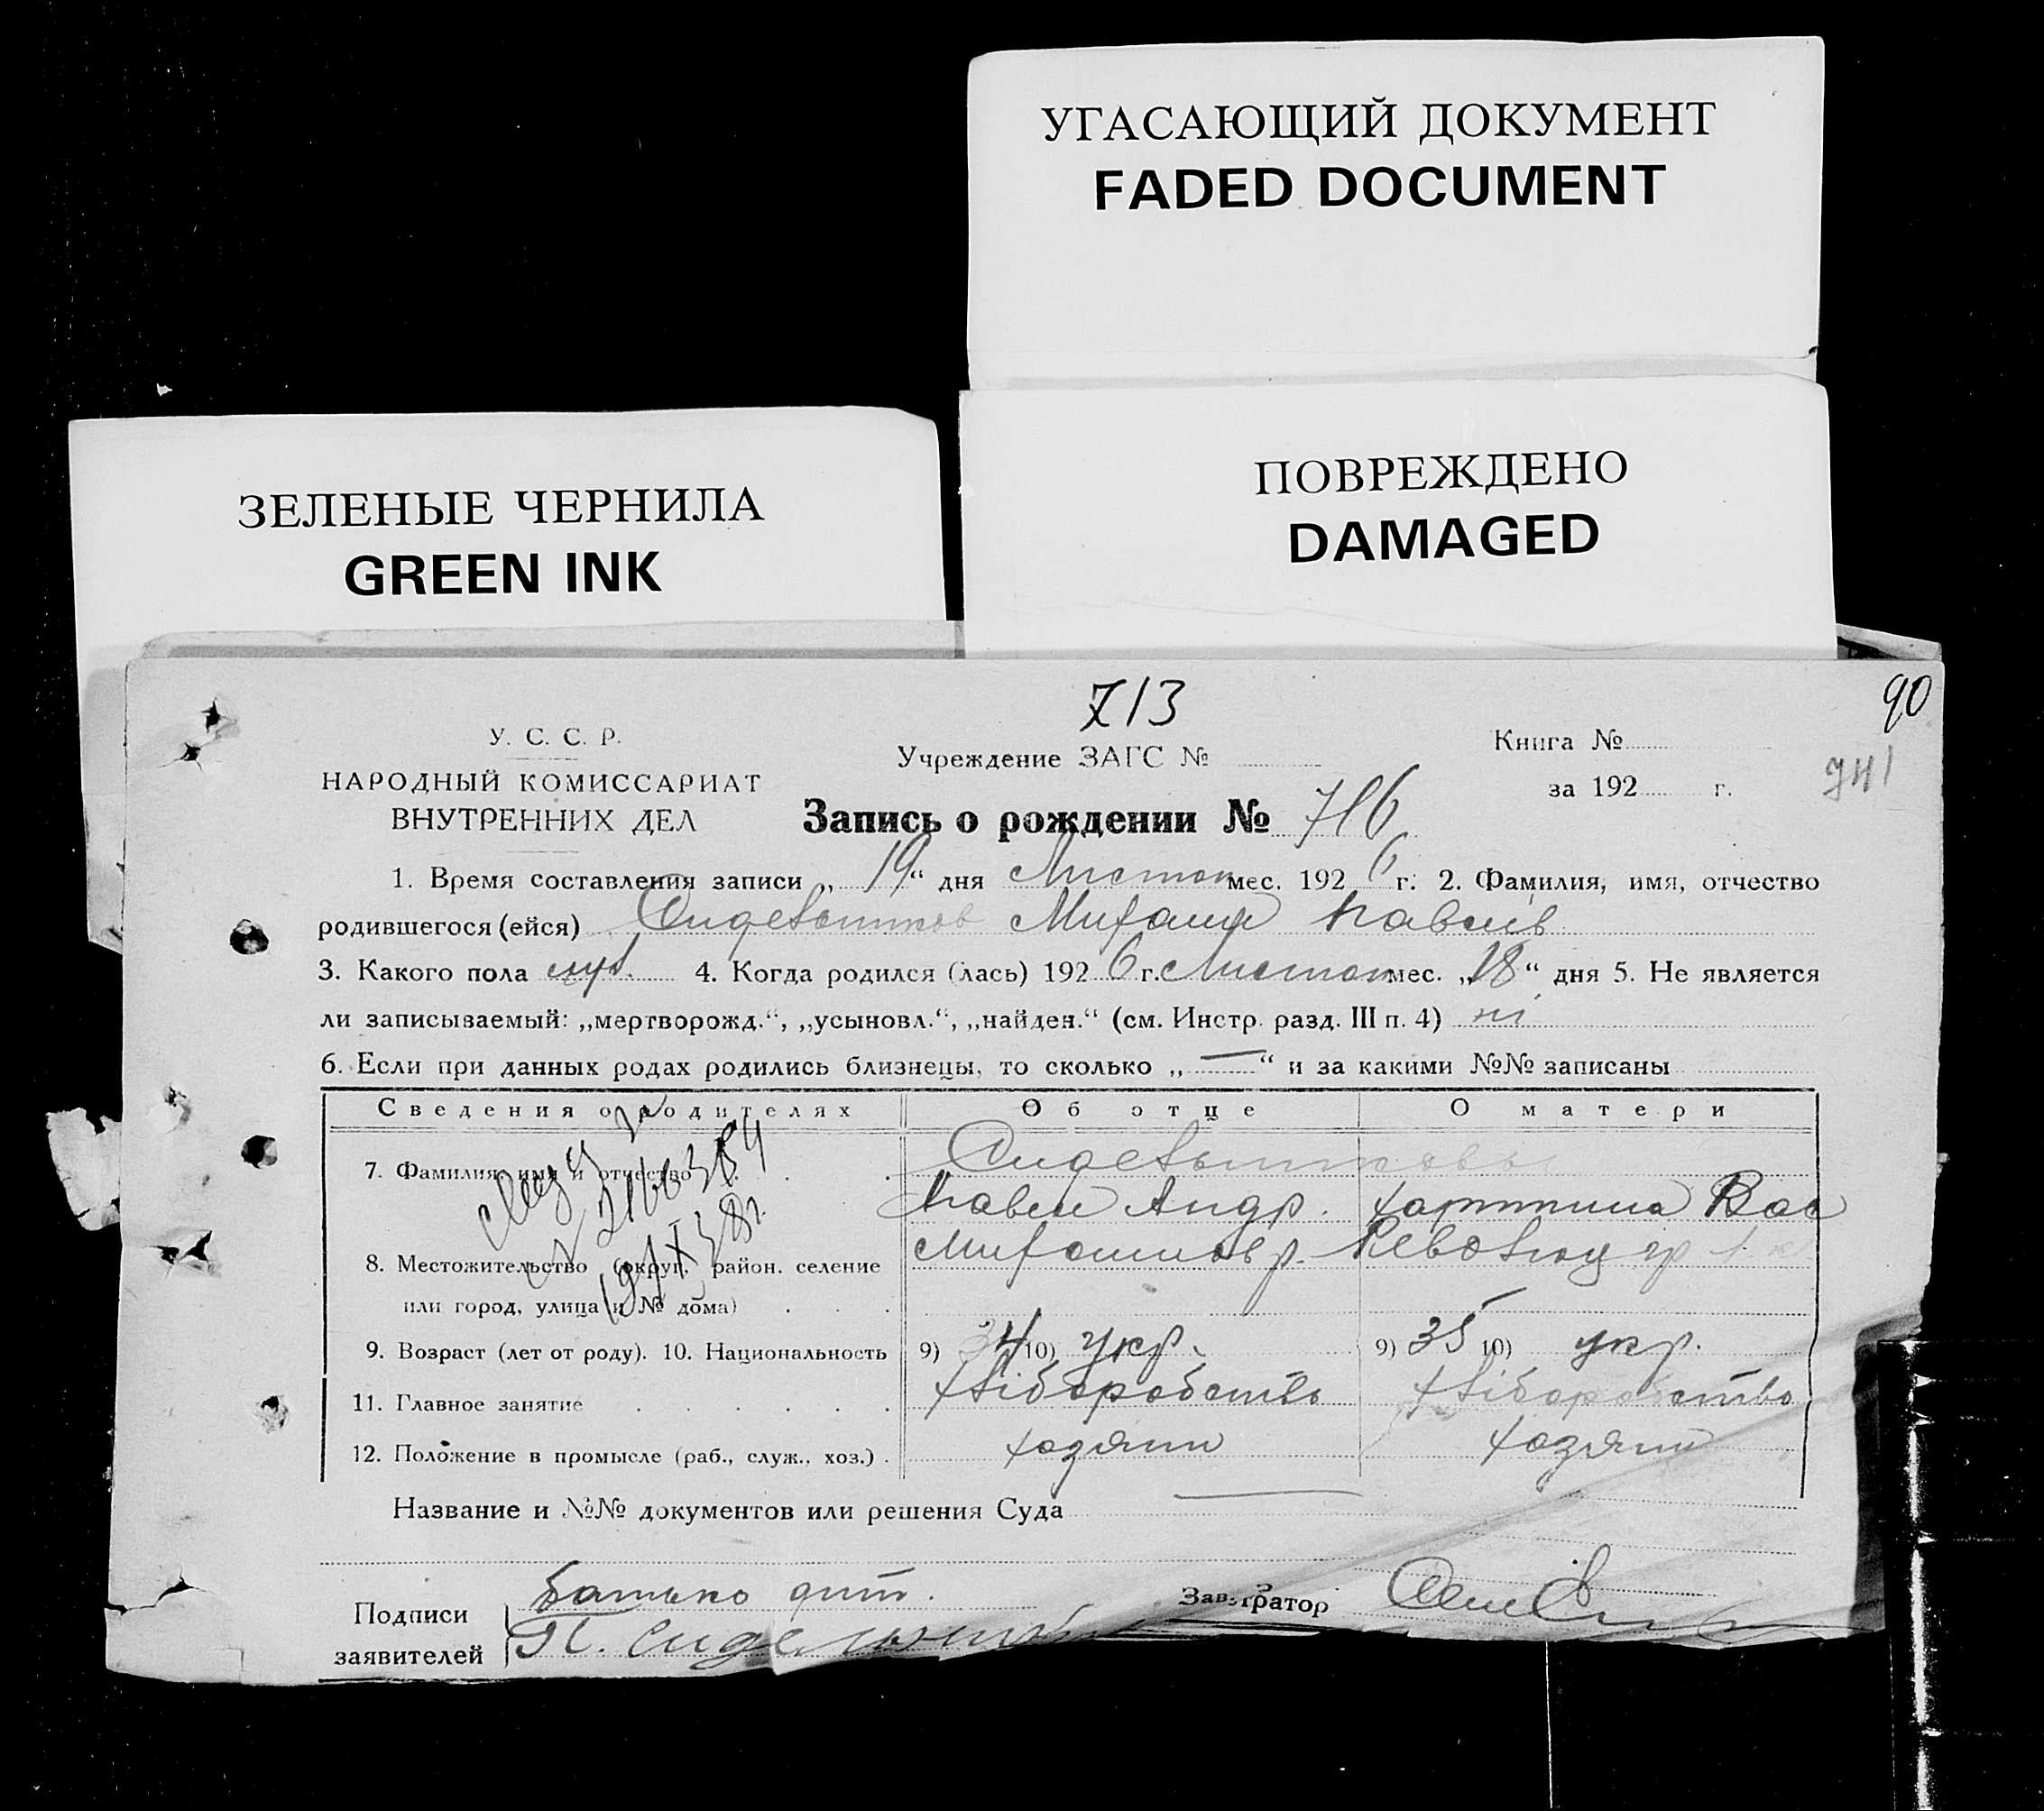 УГАСАЮЩИЙ ДОКУМЕНТ
FADED DOCUMENT
ЗЕЛЕНЫЕ ЧЕРНИЛА
GREEN INK
ПОВРЕЖДЕНО
DAMAGED
713
90
У. С. С. Р.
НАРОДНЫЙ КОМИССАРИАТ
ВНУТРЕННИХ ДЕЛ
Учреждение ЗАГС №
Книга №
за 192 г.
741
Запись о рождении № 716
1. Время составления записи „ 19 “ дня Листоп мес. 192 6 г. 2. Фамилия, имя, отчество
родившегося (ейся) Михаил Павлів
3. Какого пола муж. 4. Когда родился (лась) 192 6 г. Листоп мес. „ 18 “ дня 5. Не является
ли записываемый: „мертворожд.“, „усыновл.“, „найден.“ (см. Инстр. разд. III п. 4) ні
6. Если при данных родах родились близнецы, то сколько „ — “ и за какими №№ записаны
Сведения о родителях Об отце О матери
7. Фамилия, имя и отчество
Павел Андр. Вас
8. Местожительство (округ, район, селение
или город, улица и № дома)
9. Возраст (лет от роду). 10. Национальность 9) 34 10) укр. 9) 35 10) укр.
11. Главное занятие хліборобство хліборобство
12. Положение в промысле (раб., служ., хоз.) хозяин хозяин
Название и №№ документов или решения Суда
Подписи
заявителей
Батько дит.
П.